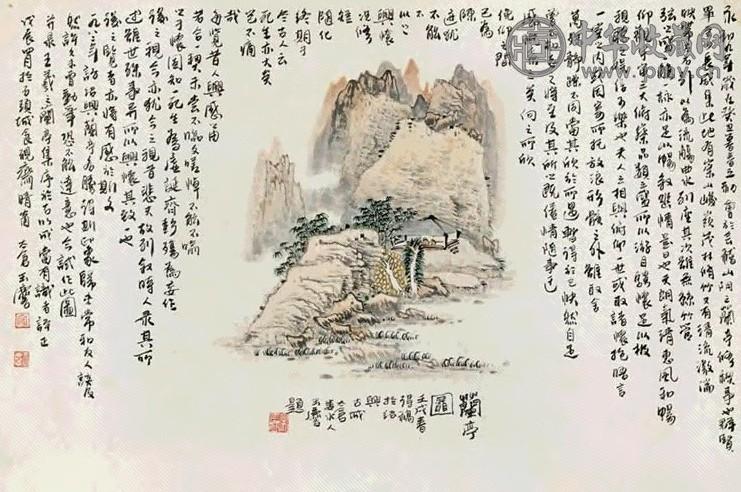 永和九年歲在癸丑暮春之初會於會稽山陰之蘭亭修禊事也群賢
畢至少長咸集此地有崇山峻嶺茂林修竹又有清流激湍
映帶左右引以為流觴曲水列坐其次雖無絲竹管
弦之盛一觴一詠亦足以暢敘幽情是日也天朗氣清惠風和暢
仰觀宇宙之大俯察品類之盛所以游目騁懷足以極
視聽之娛信可樂也夫人之相與俯仰一世或取諸懷抱晤言
一室之內或因寄所托放浪形骸之外雖取舍
萬殊靜躁不同當其欣於所遇暫得於己快然自足
不知老之將至及其所之既倦情隨事遷
感慨係之矣向之所欣
俛仰之間
已為陳
迹猶
不能
不
以之
興懷
況修
短
隨化
終期于
盡古人云
死生亦大矣
豈不痛
哉
每覽昔人興感之由
若合一契未嘗不臨文嗟悼不能不喻
之于懷固知一死生為虛誕齊彭殤為妄作
後之視今亦猶今之視昔悲夫故列敘時人錄其所
述雖世殊事異所以興懷其致一也
後之覽者亦將有感於斯文
九八二年訪紹興蘭亭名勝得到印象歸來常和友人談及
試作此圖
并錄王羲之蘭亭集序於
戊辰
蘭亭
圖
壬戌春
得稿
於紹
興
古城
題
中华收藏网